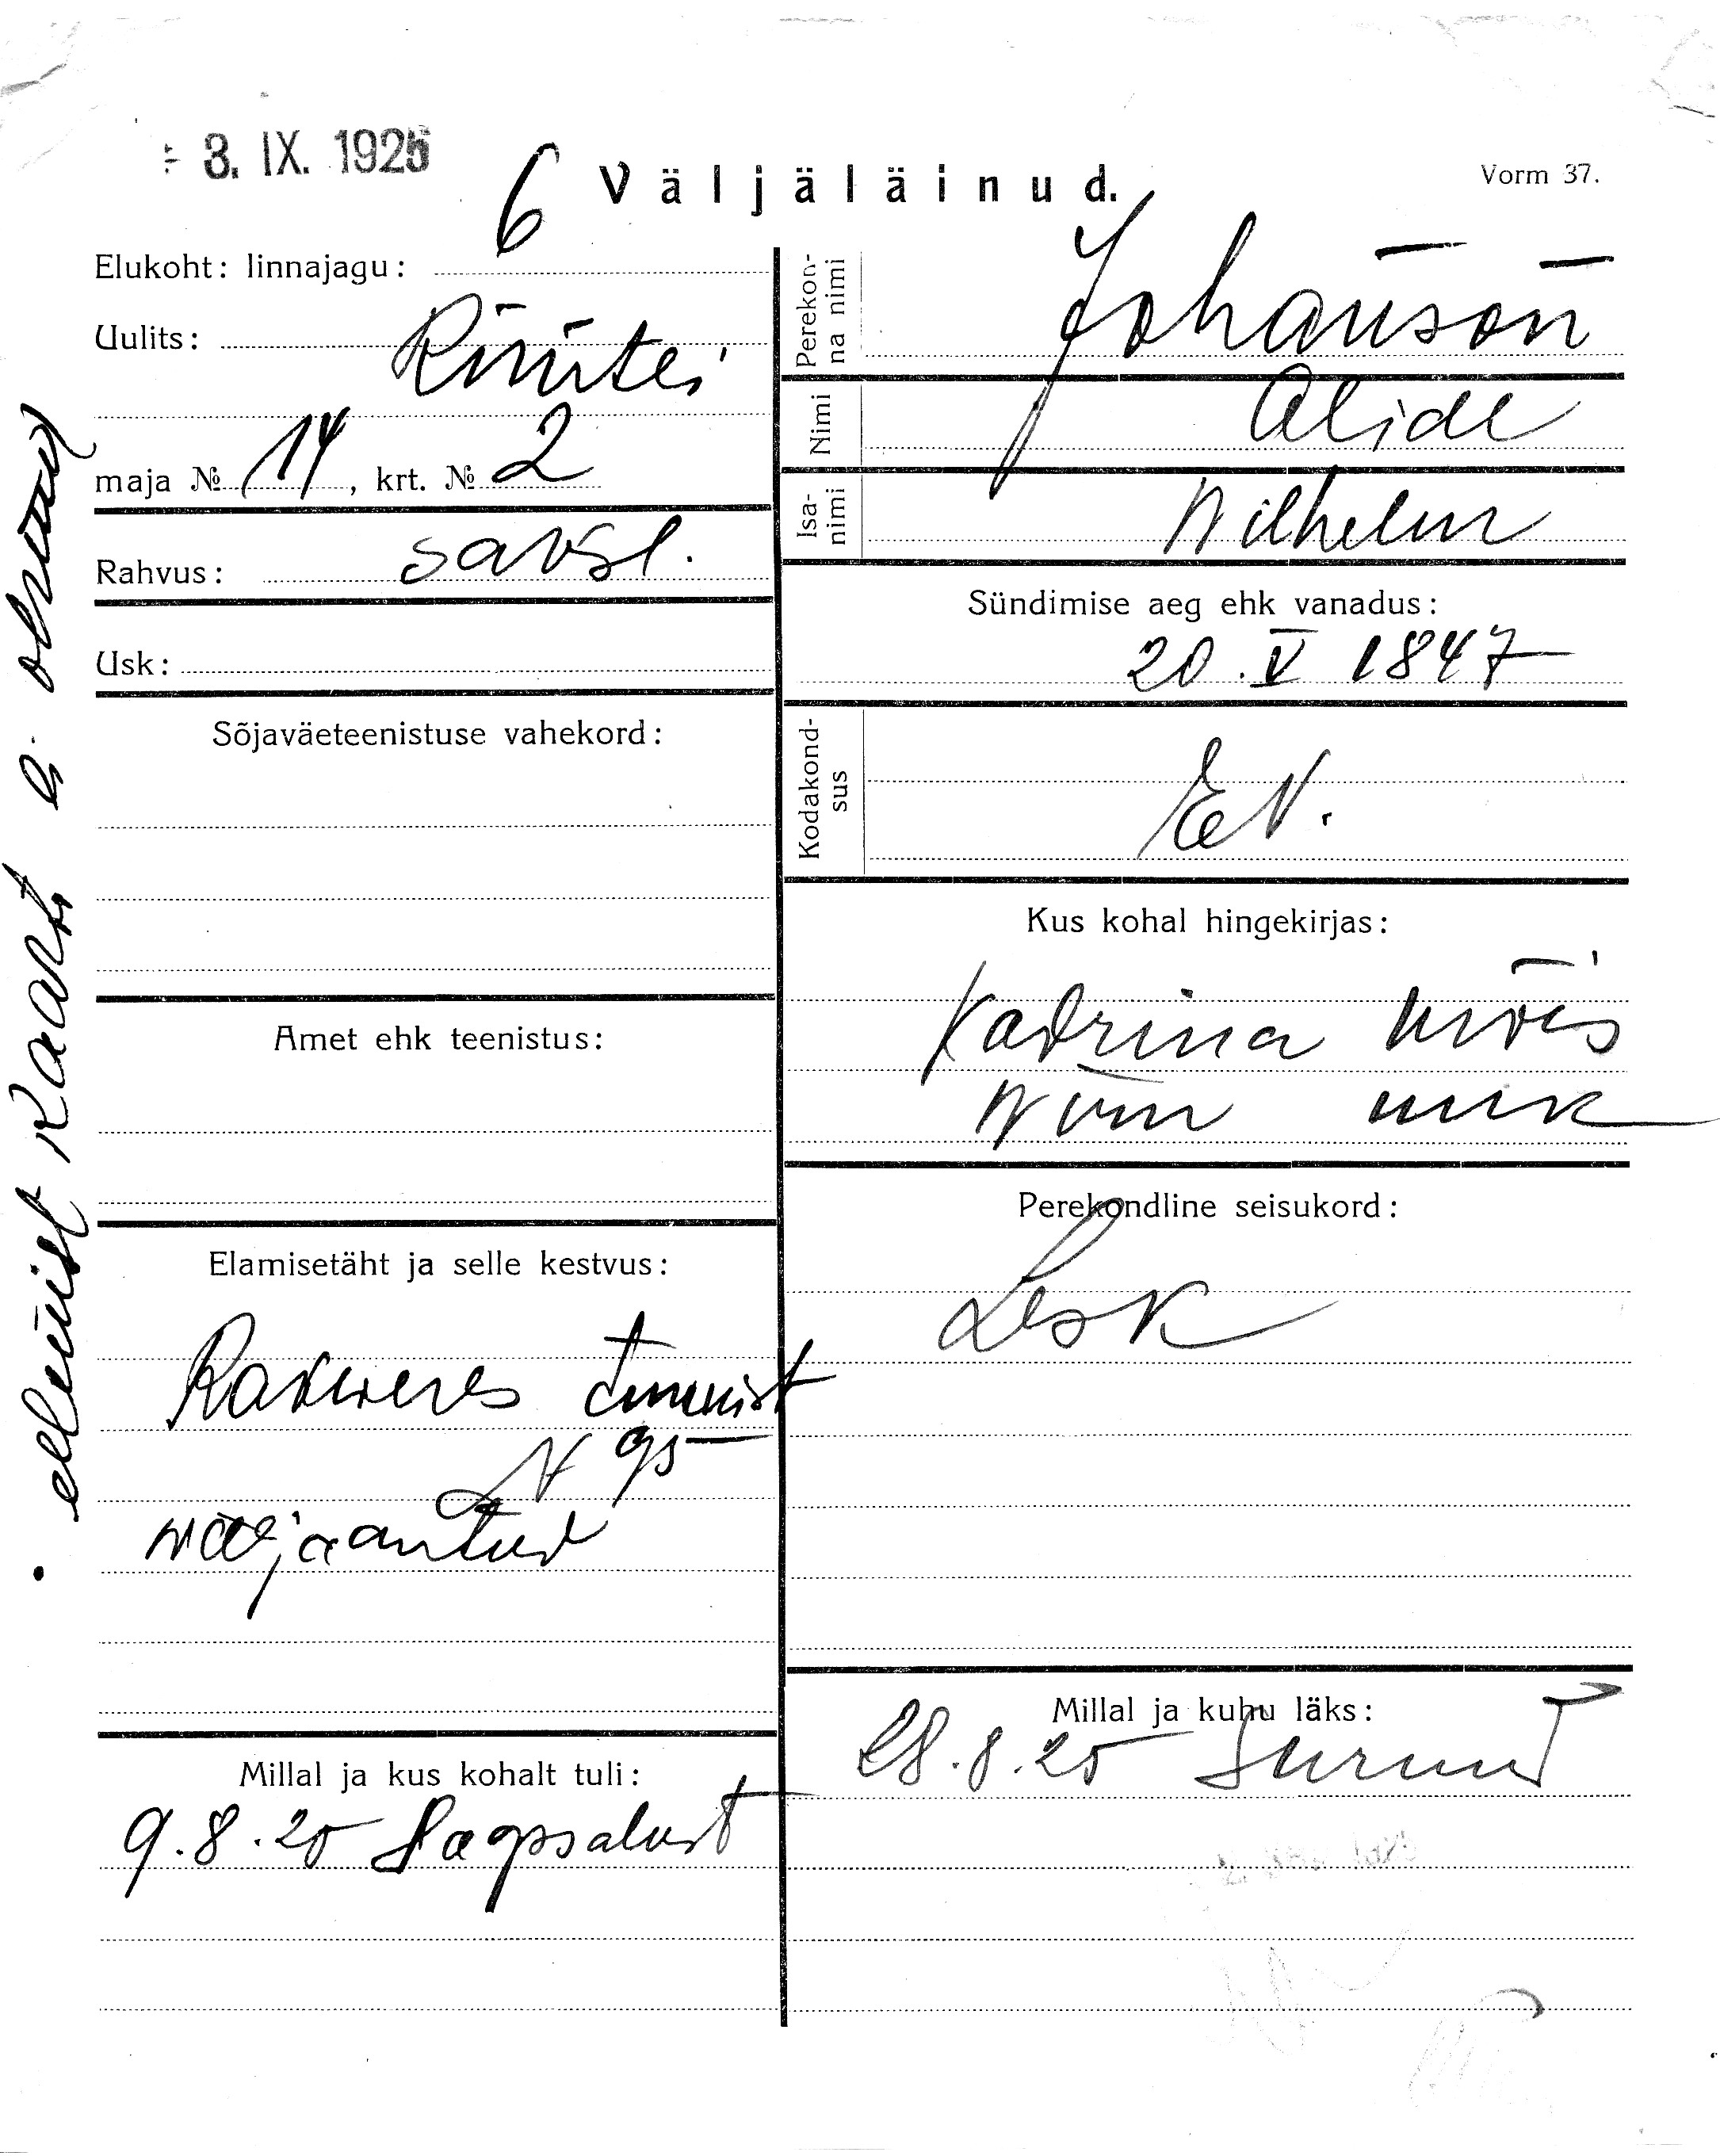 3. IX. 1925
Väljaläinud.
Vorm 37.
Elukoht: linnajagu: 6
Uulits: Rüütli
maja № 14, krt. № 2
Rahvus: saksl.
Usk:
Sõjaväeteenistuse vahekord:
Amet ehk teenistus:
Elamisetäht ja selle kestvus:
Rakweres
N 95
wäljaantud
Millal ja kus kohalt tuli:
9.8.25 Haapsalust
Perekonna nimi Johanson
Nimi Alide
Isanimi Wilhelm
Sündimise aeg ehk vanadus:
20. V 1847
Kodakondsus
E V.
Kus kohal hingekirjas:
Kadrina mõis
Perekondline seisukord:
Lesk
Millal ja kuhu läks:
28.8.25 Surnud